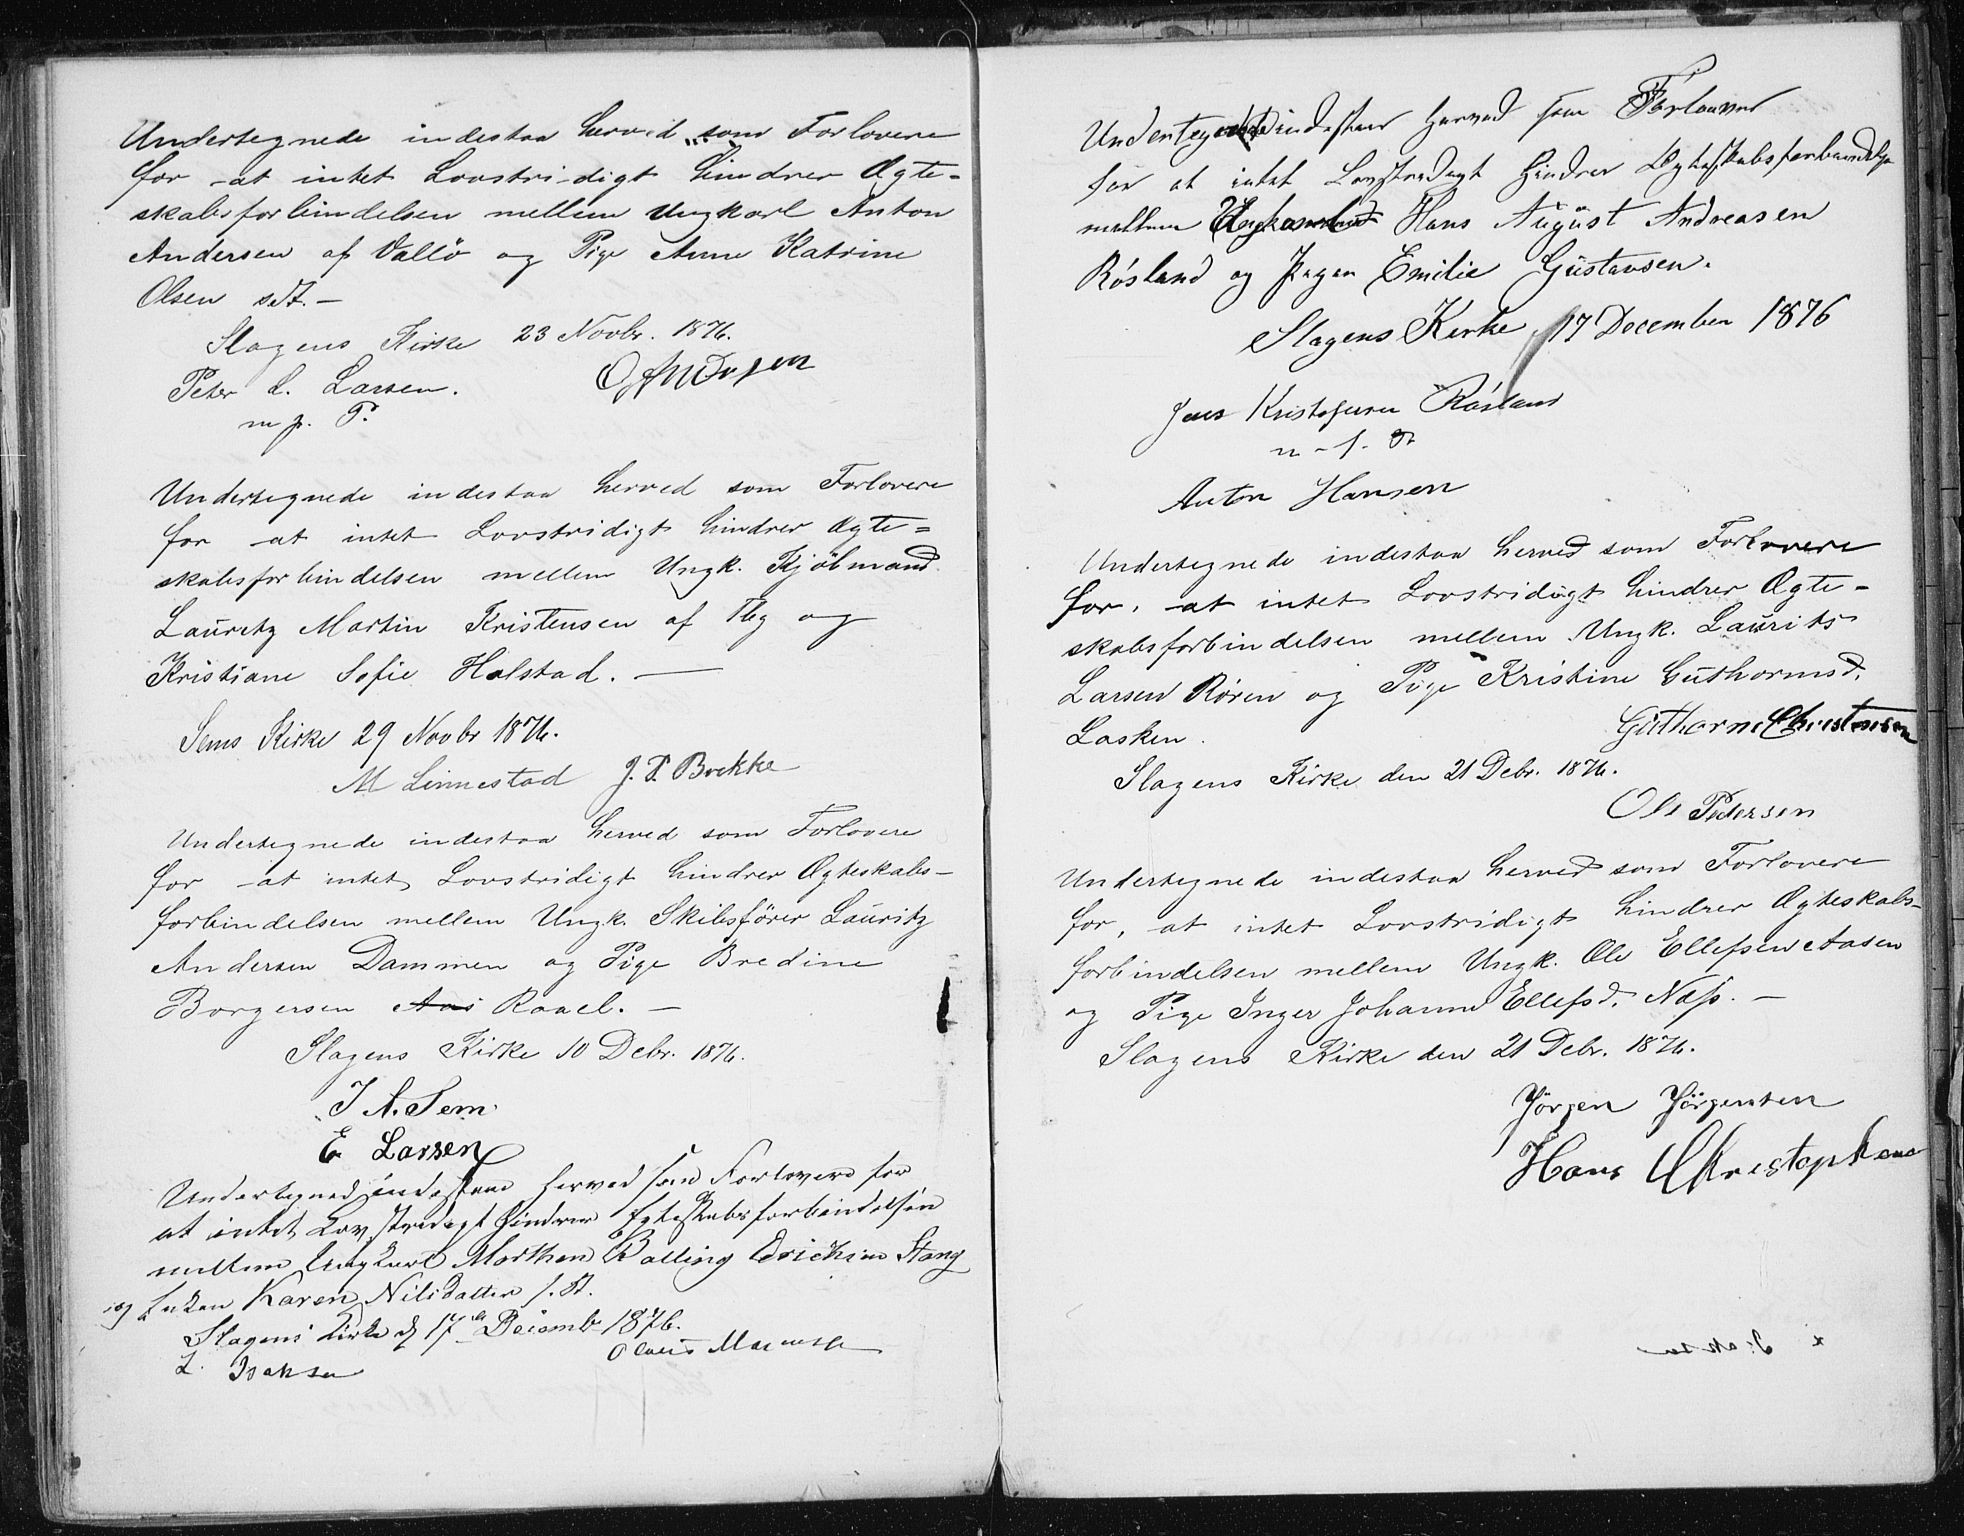 Undertegnede indestaa herved som Forlovere
for at intet Lovstridigt hindrer Ægte-
skabsforbindelsen mellem Ungkarl Anton
Andersen af Vallö og Pige Anne Katrine
Olsen sdt. -
Slagens Kirke 23 Novbr. 1876.
Peter L. Larsen.
m. p. P.
Undertegnede indestaa herved som Forlovere
for at intet Lovstridigt hindrer Ægte=
skabsforbindelsen mellem Ungk. Kjöbmand
Lauritz Martin Kristensen af Tbg og
Kristiane Sofie Holstad. —
Sems Kirke 29 Novbr 1876.
M Linnestad J. P. Brekke
Undertegnede indestaa herved som Forlovere
for at intet Lovstridigt hindrer Ægteskabs-
forbindelsen mellem Ungk. Skibsförer Lauritz
Andersen Dammen og Pige Bredine
Borgersen Aas Rael. -
Slagens Kirke 10 Debr. 1876.
J A. Sem
E Larsen
Undertegned indestaae herved som Forlovere for
at intet Lovstridigt hindrer Egteskabsforbindelsen
mellem Ungkarl Morthen Balling Erichsen Stang
og Enken Karen Nilsdatter s. St.
Slagens Kirke d 17de Decemb 1876.
L. Isaksen Olaus
Undertegnede indestaar herved som Forlovere
for at intet Lovstridigt hindrer Ægteskabsforbindelse
mellem Ungkarl Hans August Andreasen
Rösland og Pigen Emilie Gustavsen.
Slagens Kirke 17 December 1876
Jens Kristofersen Rösland
m. p. P
Anton Hansen
Undertegnede indestaa herved som Forlovere
for, at intet Lovstridigt hindrer Ægte-
skabsforbindelsen mellem Ungk. Laurits
Larsen Rören og Pige Kristine Guthormsd.
Lasken. Guthorm Christensen
Slagens Kirke den 21 Debr. 1876.
Ole Petersen
Undertegnede indestaa herved som Forlovere
for, at intet Lovstridigt hindrer Ægteskabs-
forbindelsen mellem Ungk. Ole Ellefsen Aasen
og Pige Inger Johanne Ellefsd. Næss. -
Slagens Kirke den 21 Debr. 1876.
Jörgen Jörgensen
Hans Christophersen